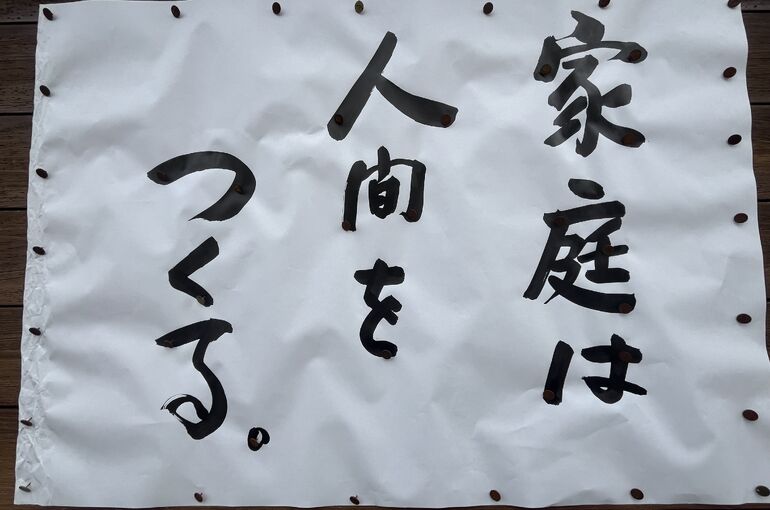 家庭は
人間を
つくる。